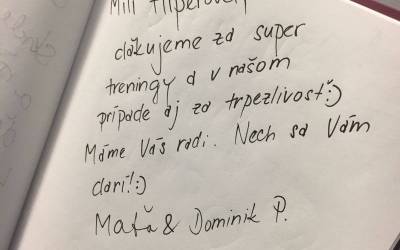 Milí
ďakujeme za super
treningy a v našom
prípade aj za trpezlivosť:)
Máme Vás radi. Nech sa Vám
darí!:)
Maťa & Dominik P.